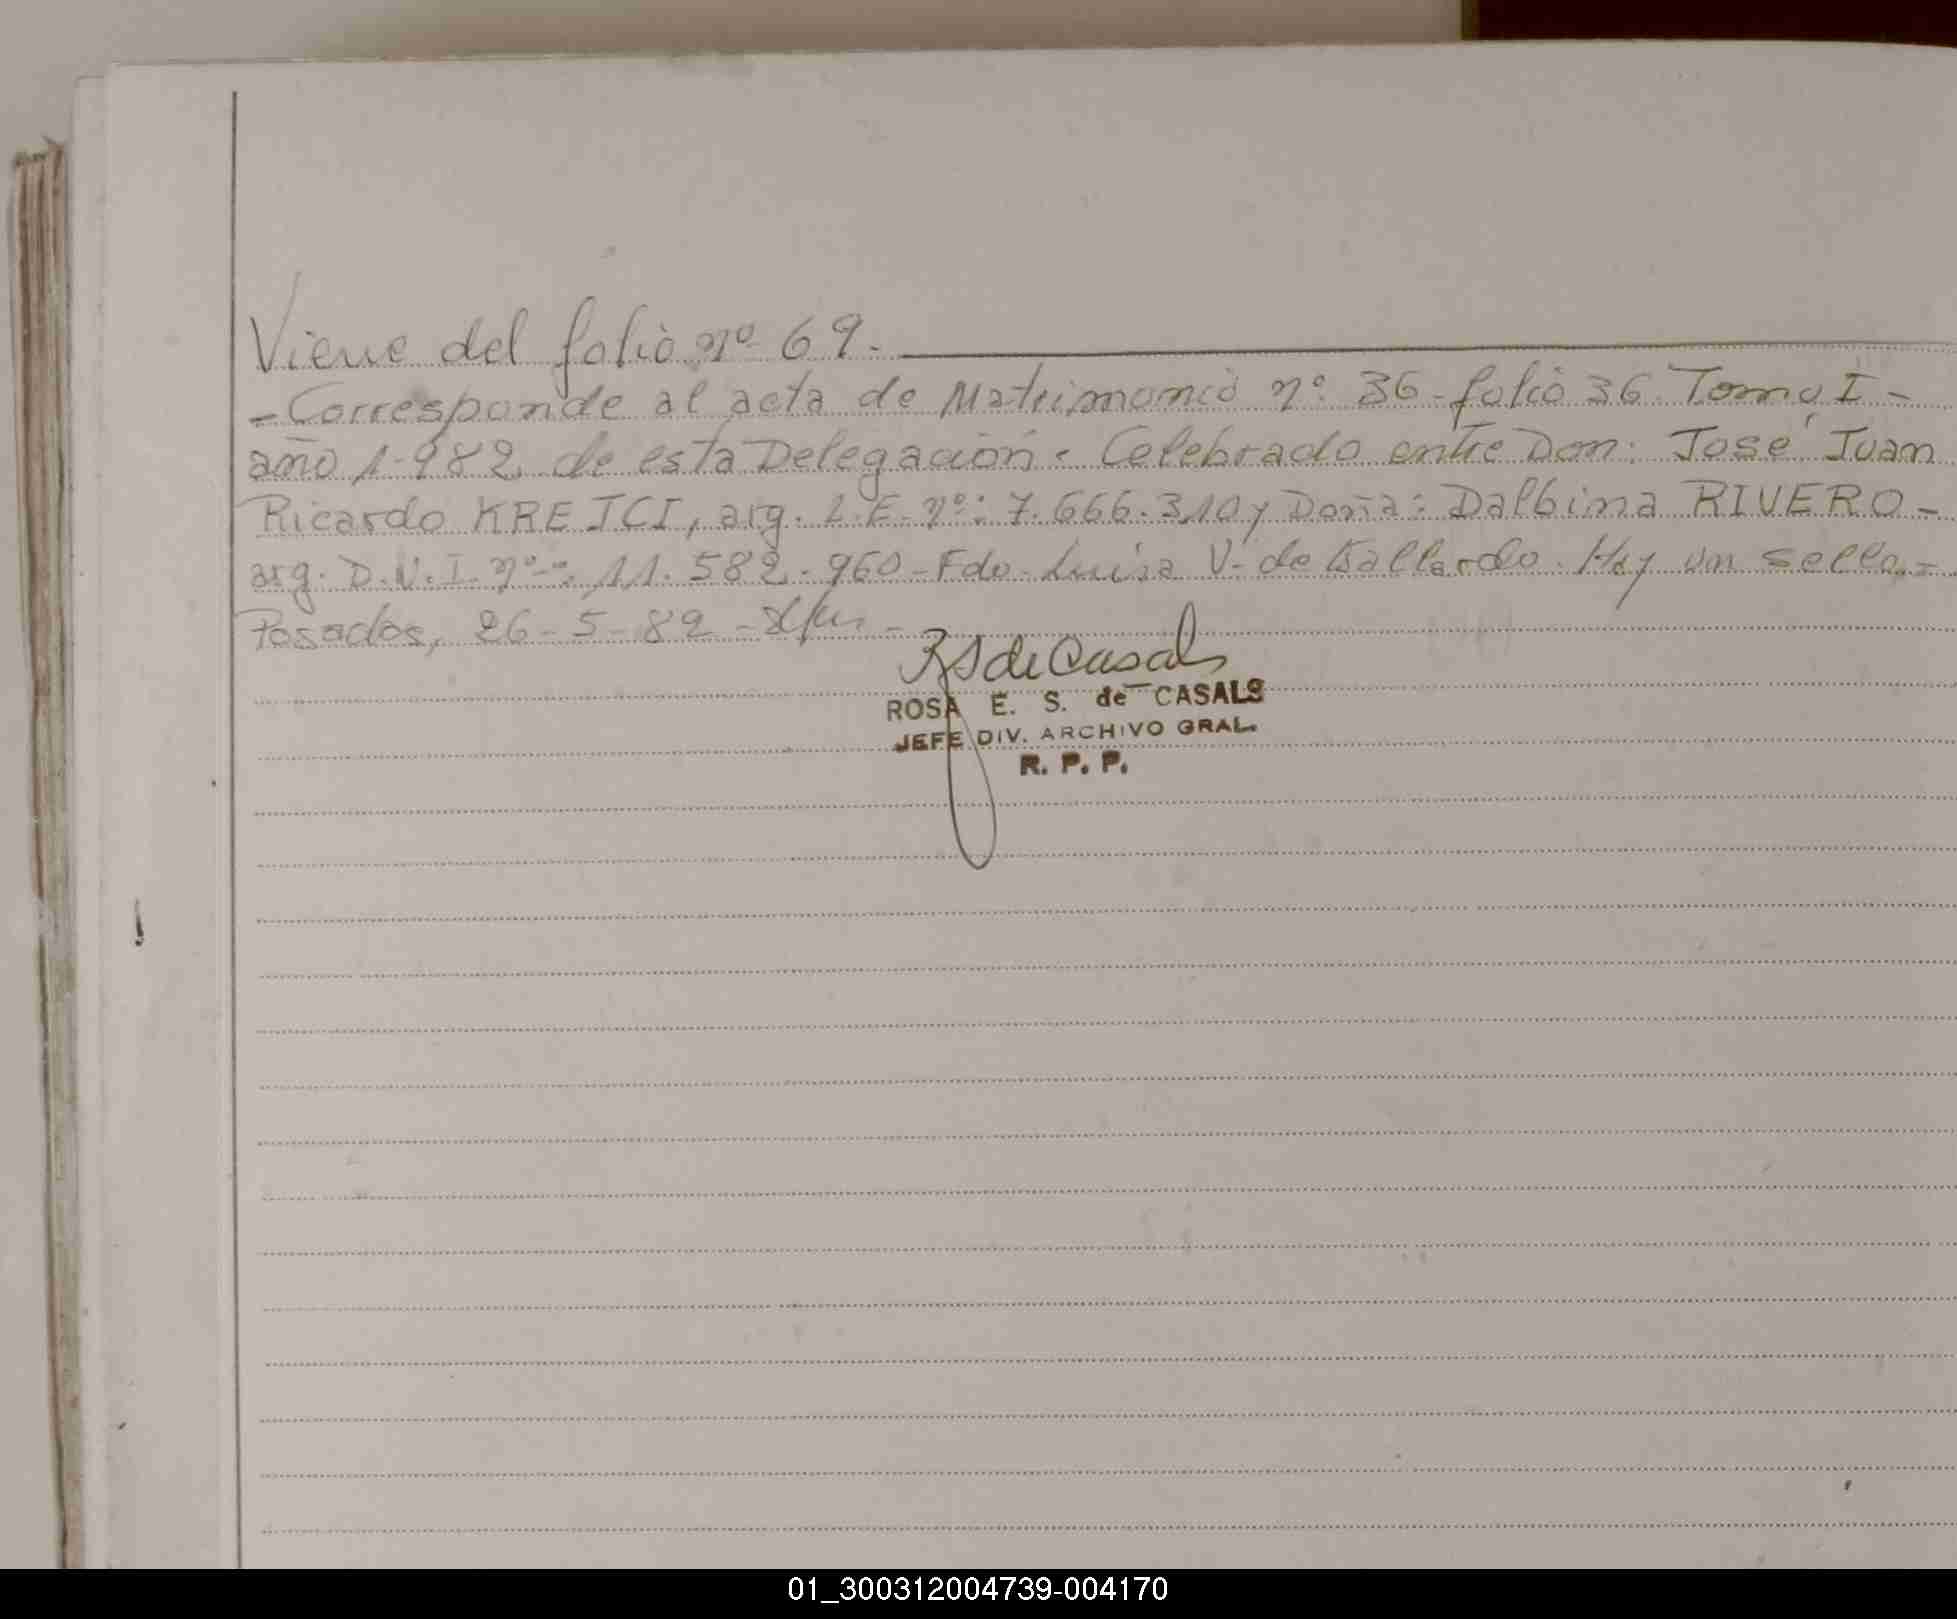 Viene del folio nº 69.
- Corresponde al acta de Matrimonio nº: 36 - folio 36. Tomo, I -
año 1.982 de esta Delegación. Celebrado entre Don: José Juan
Ricardo KREJCI, arg. L.E. nº: 7.666.310 y Doña: Dalbina RIVERO -
arg. D.N.I. nº: 11.582.960 - Fdo. Luisa V. de Gallardo. Hay un sello. -
Posadas, 26-5-82 -
RS de Casals
ROSA E. S. de CASALS
JEFE DIV. ARCHIVO GRAL.
R. P. P.
01_300312004739-004170